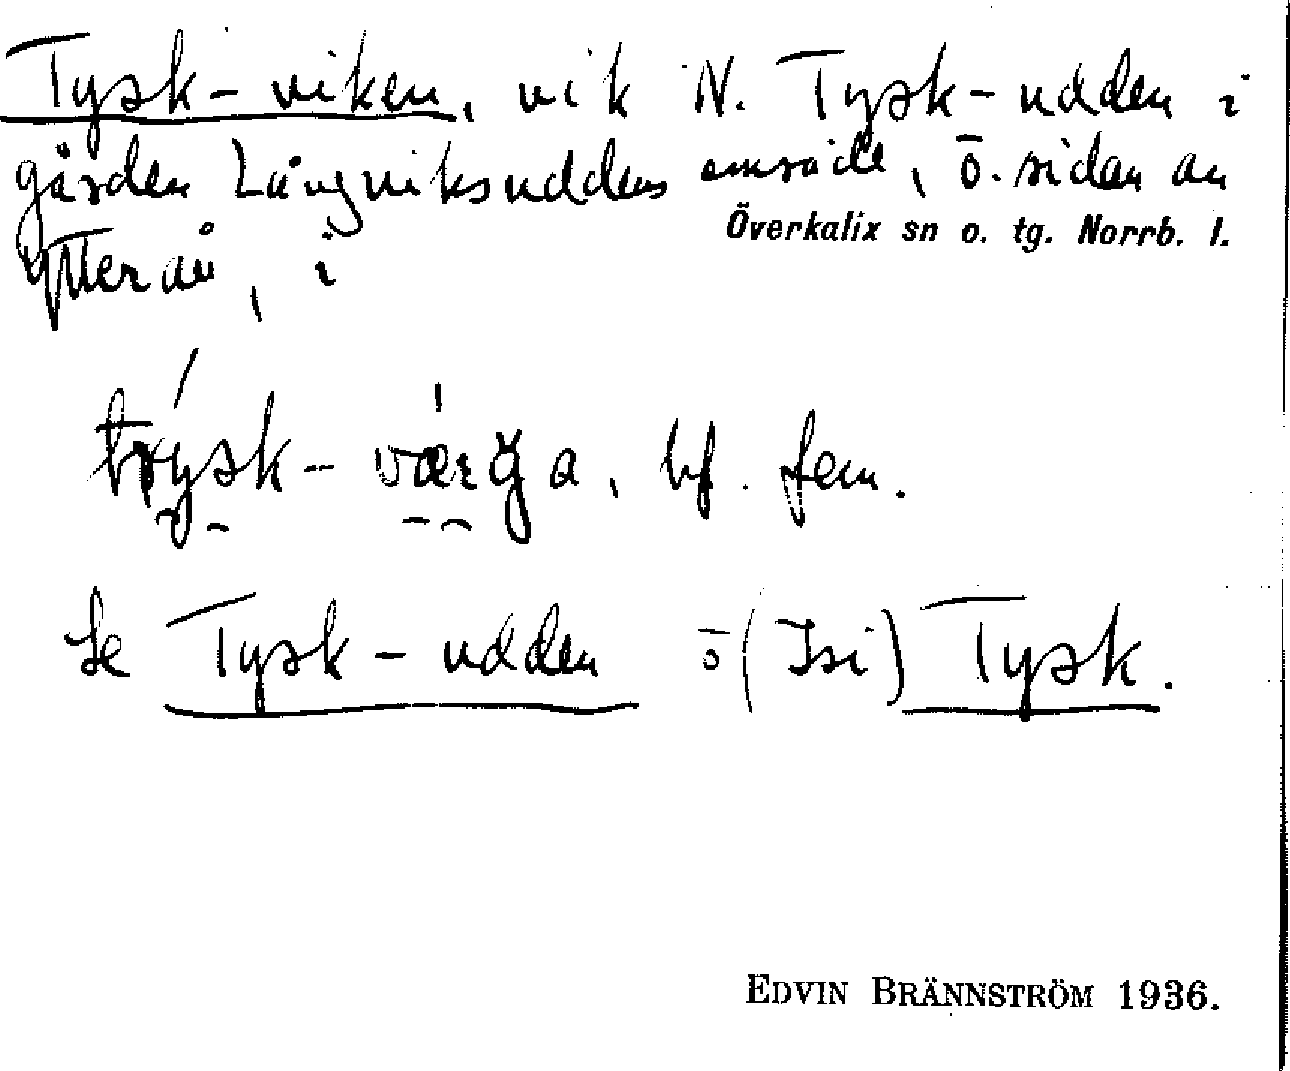 Tysk-viken, vik N. Tysk-udden i
gården Långviksuddens område, ö. sidan av
Överkalix sn o. tg. Norrb. l.
Ytterån, i
bf. fem.
Se Tysk-udden o (Isi) Tysk.
EDVIN BRÄNNSTRÖM 1936.